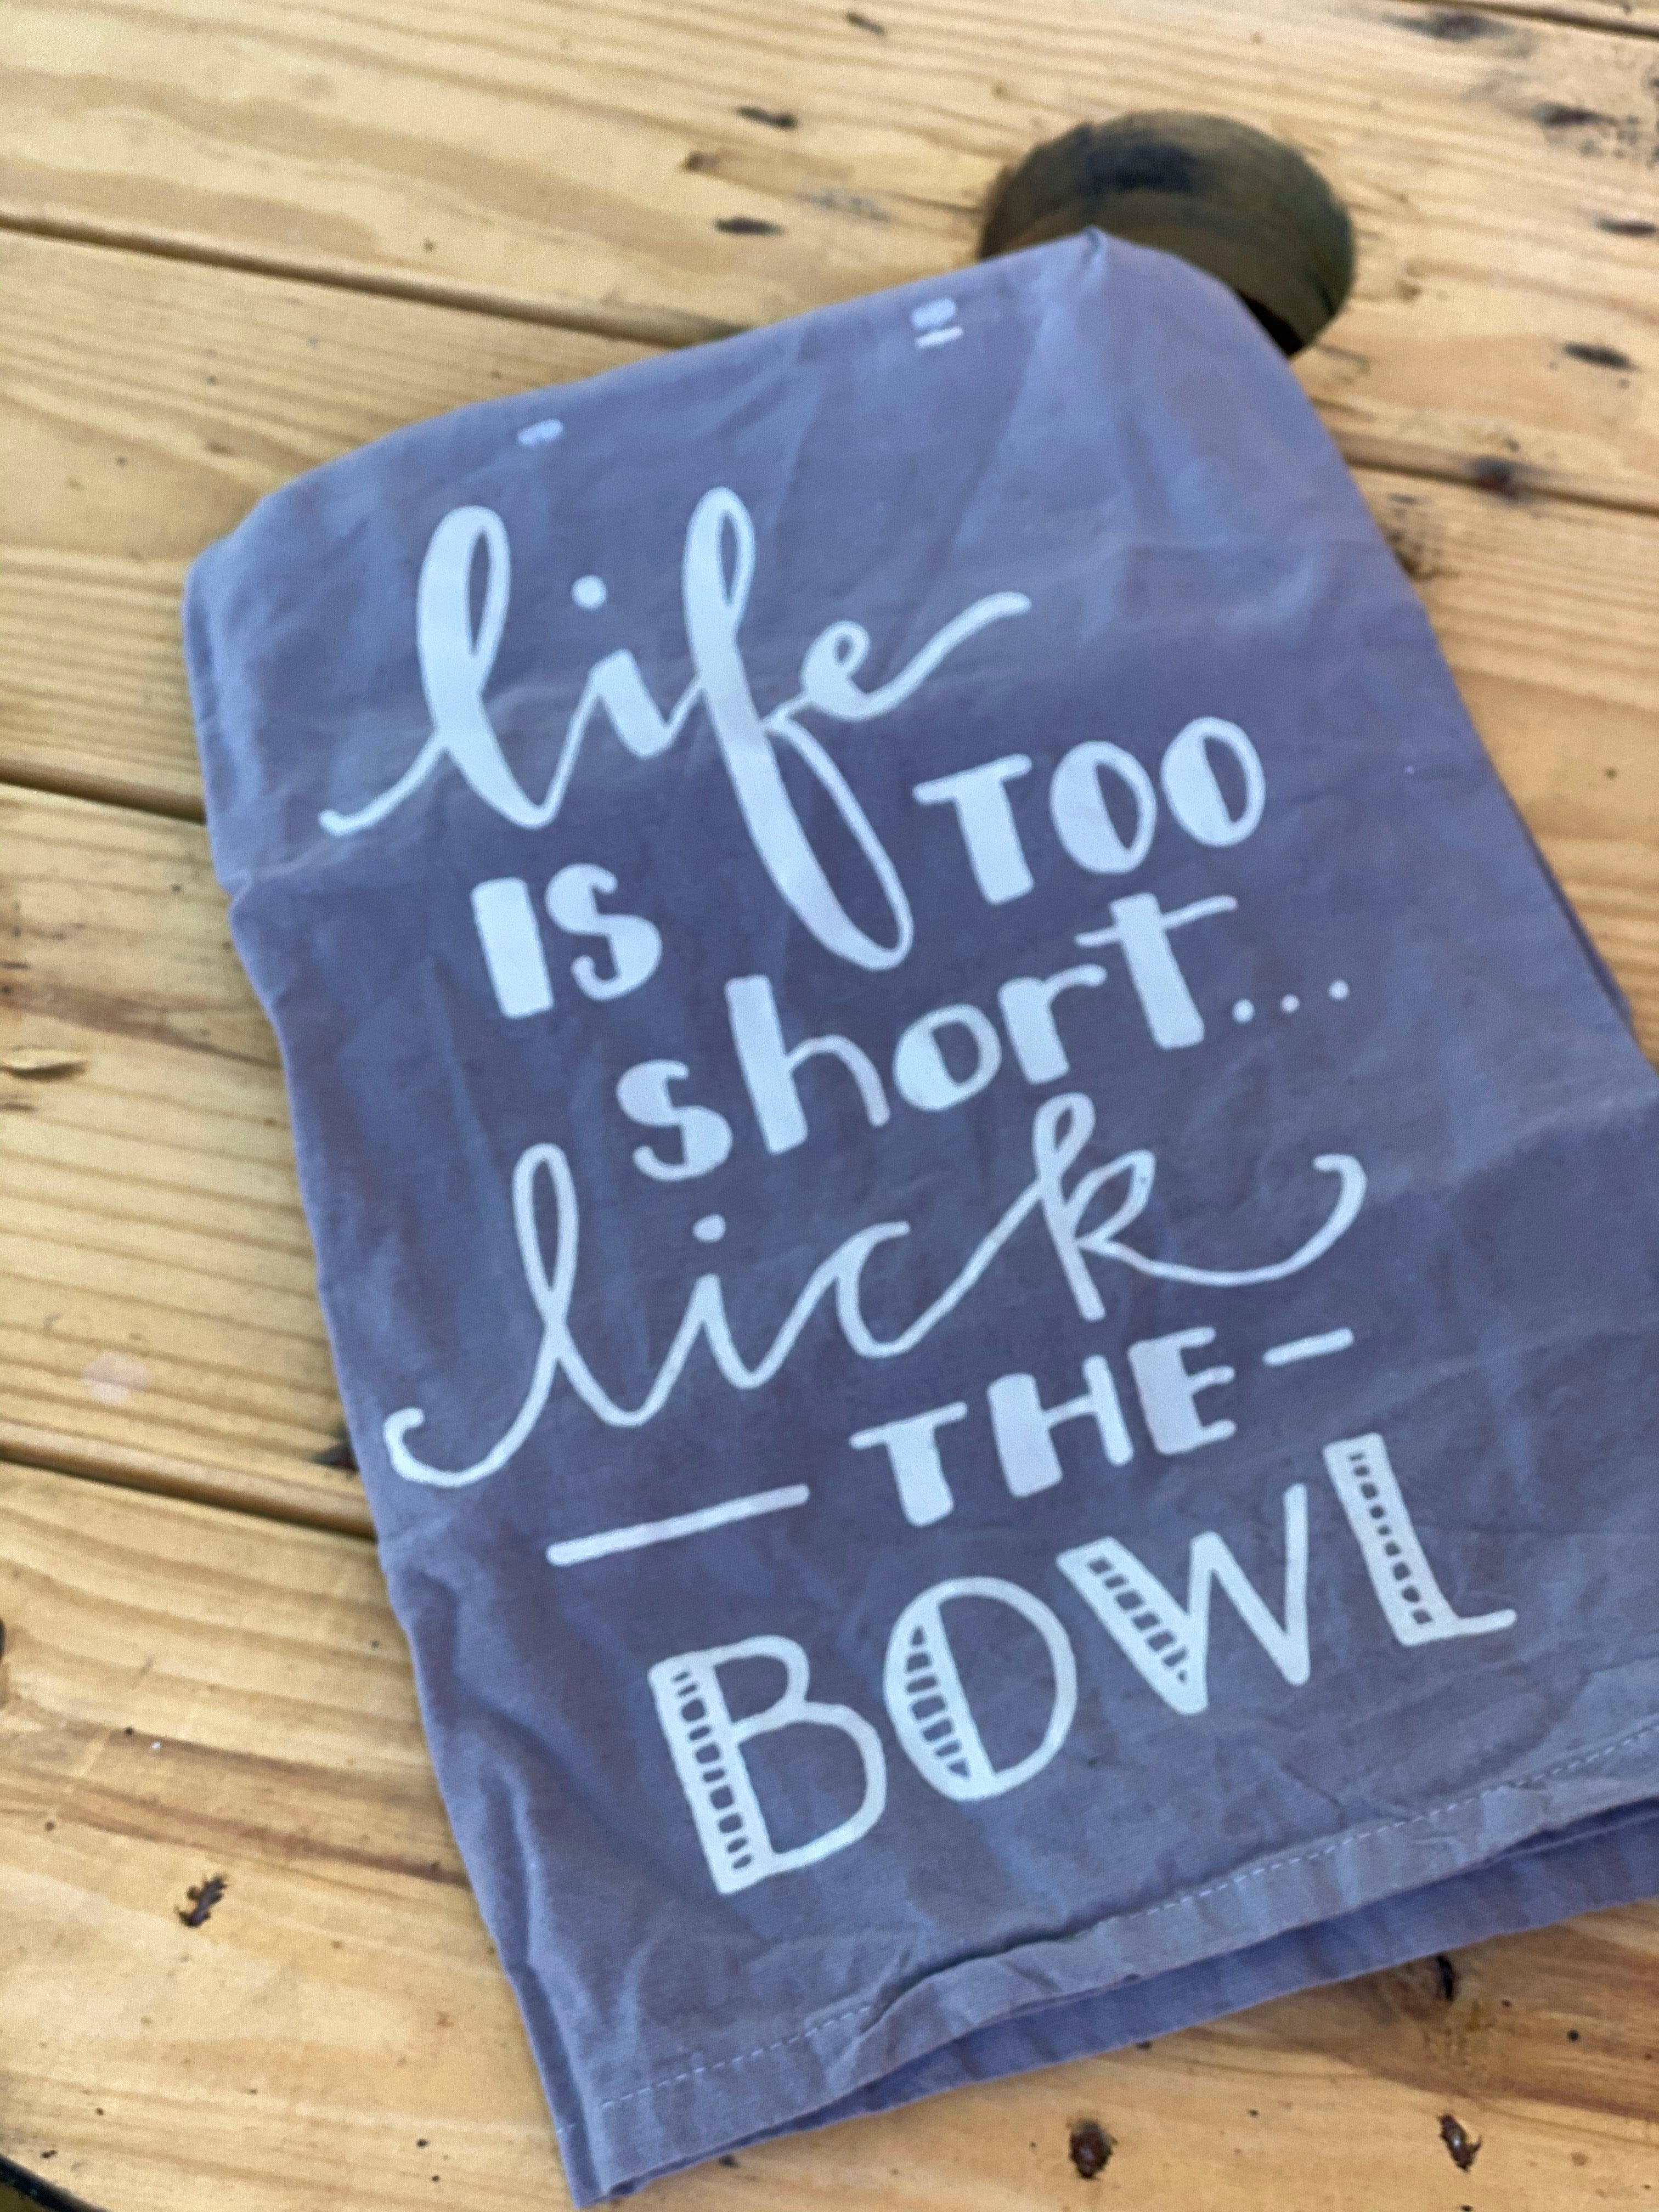 life
IS TOO
short...
lick
THE
BOWL